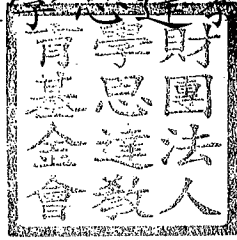 財團法人
學思達教
育基金會